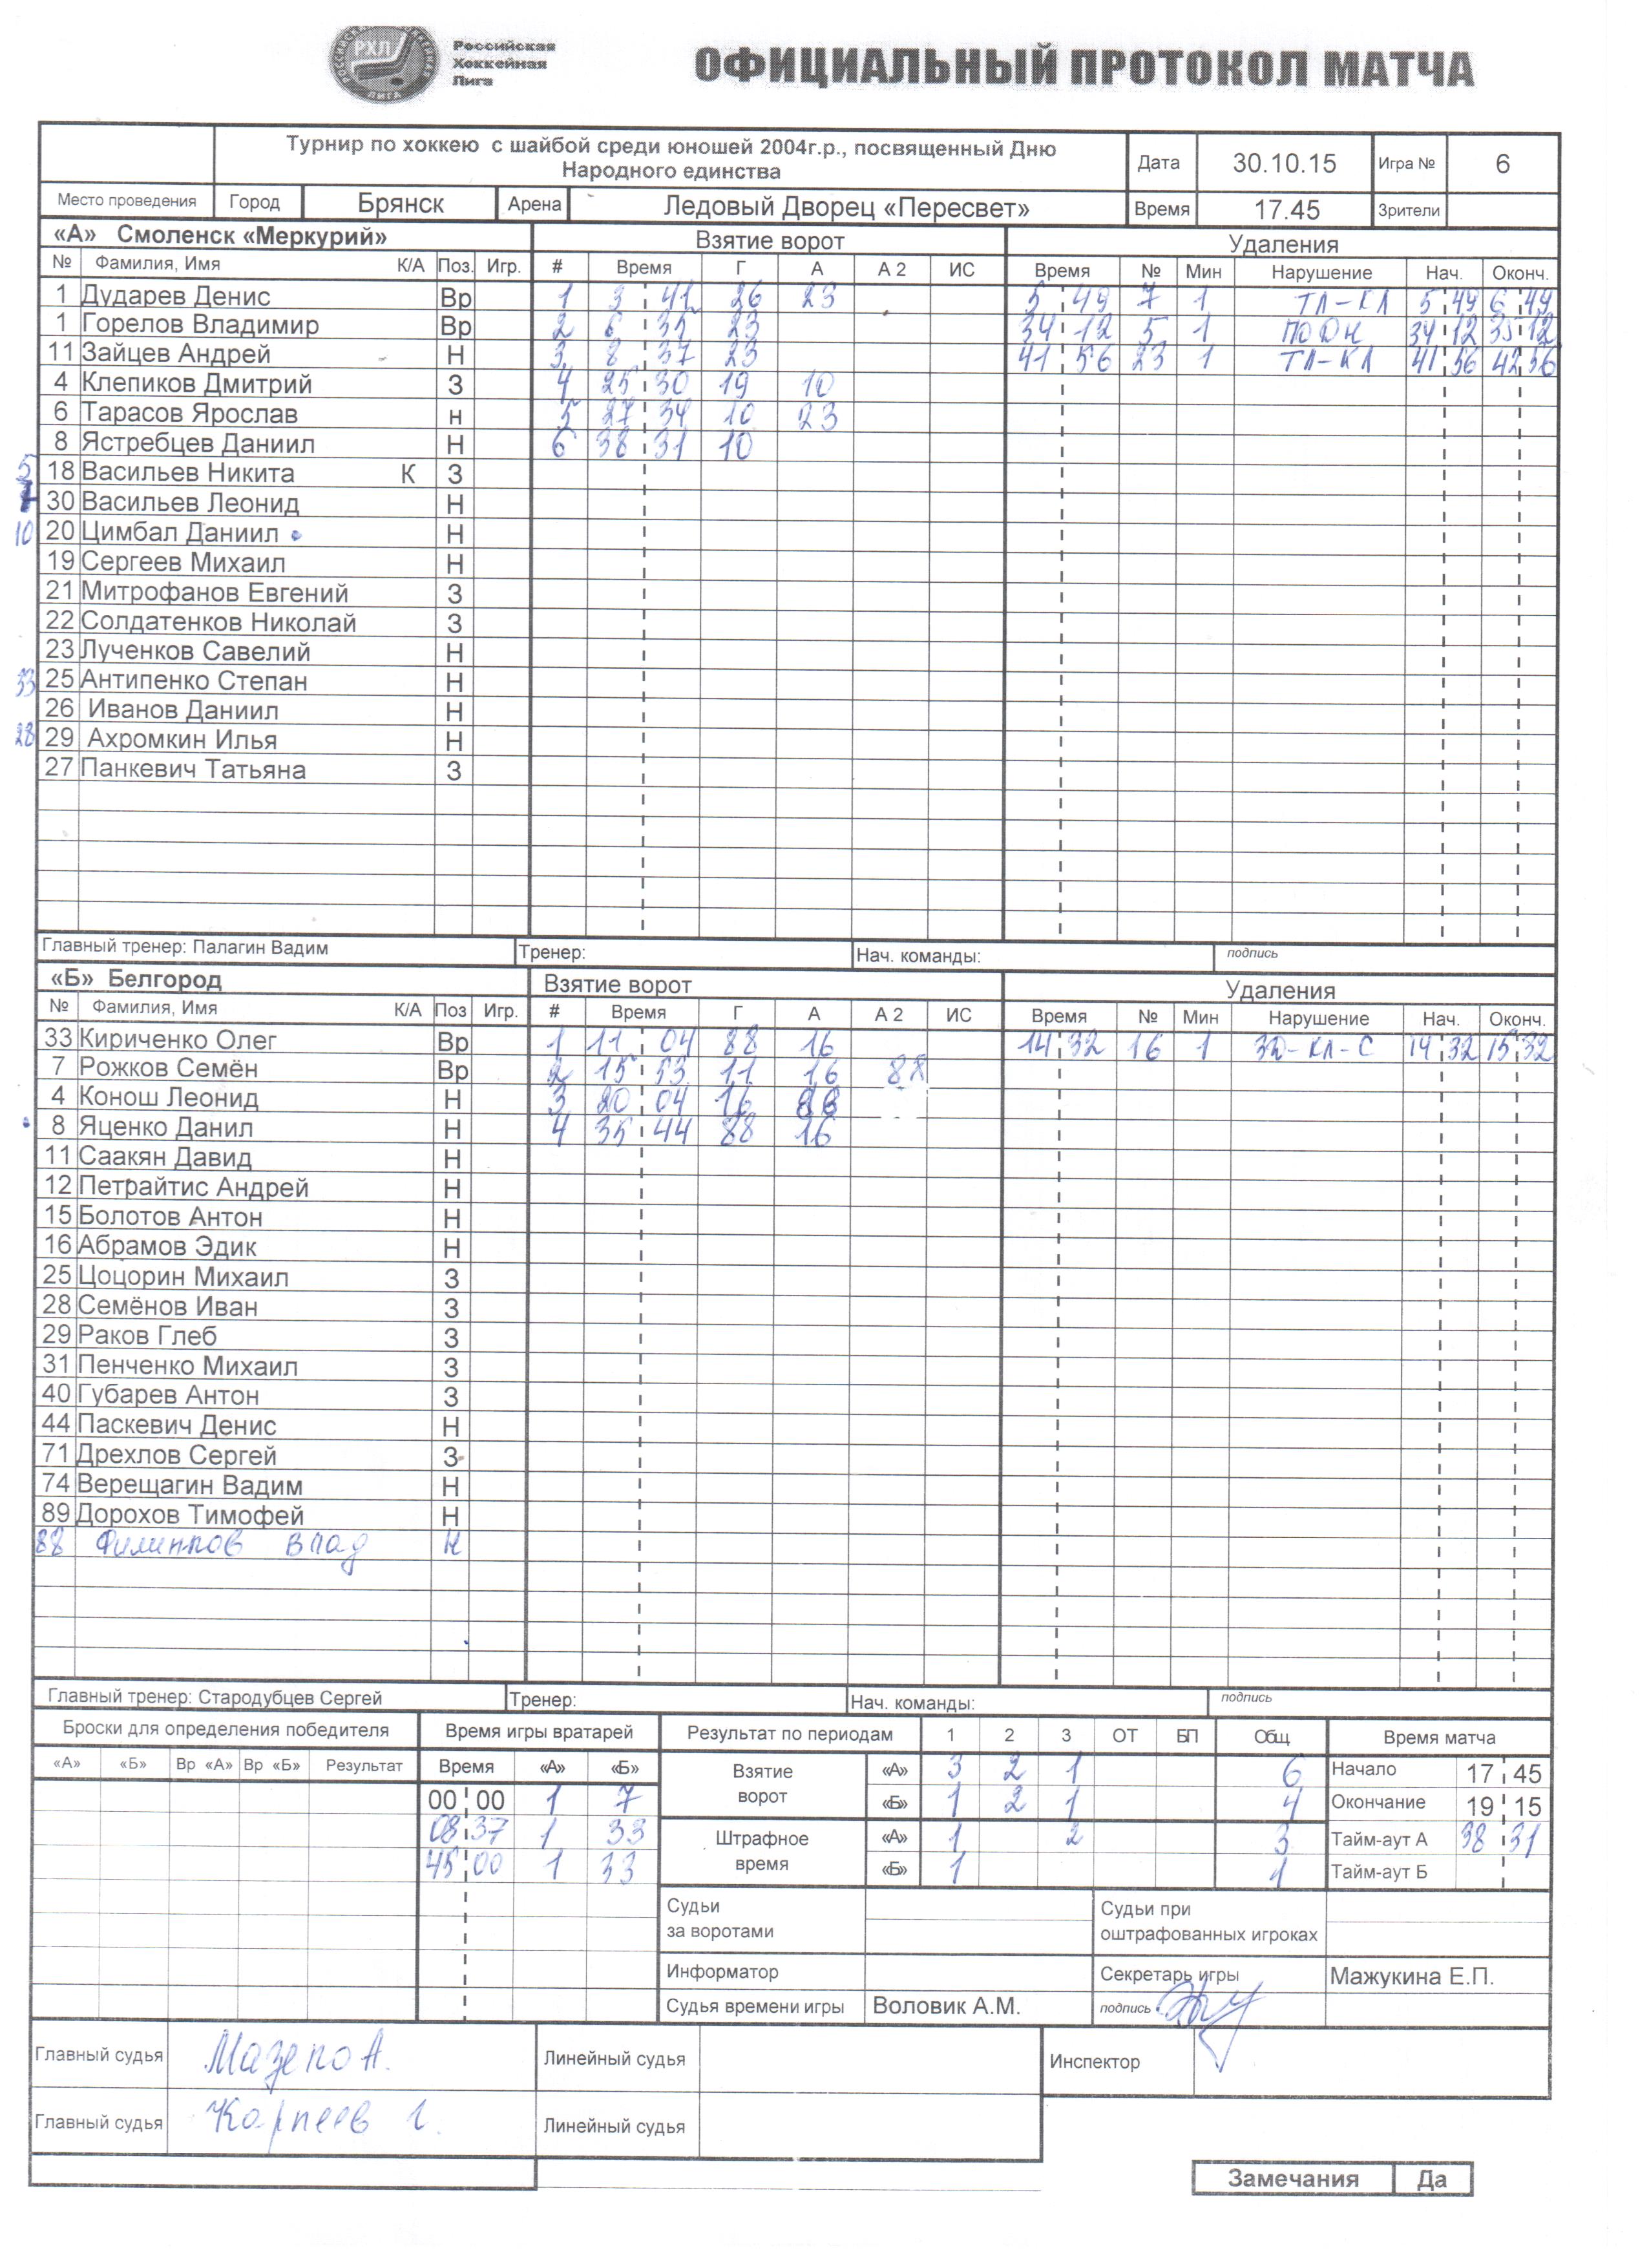 РХЛ
Российская
Хоккейная
Лига
ОФИЦИАЛЬНЫЙ ПРОТОКОЛ МАТЧА
Турнир по хоккею с шайбой среди юношей 2004г.р., посвященный Дню
Народного единства
Дата 30.10.15 Игра № 6
Место проведения Город Брянск Арена Ледовый Дворец «Пересвет» Время 17.45 Зрители
«А» Смоленск «Меркурий» Взятие ворот Удаления
№ Фамилия, Имя К/А Поз. Игр. # Время Г А А 2 ИС Время № Мин Нарушение Нач. Оконч.
1 Дударев Денис Вр 1 3 41 26 23 5 49 7 1 ТЛ-КЛ 5 49 6 49
1 Горелов Владимир Вр 2 6 35 23 34 12 5 1 ПОДН 34 12 35 12
11 Зайцев Андрей Н 3 8 37 23 41 56 23 1 ТЛ-КЛ 41 56 42 56
4 Клепиков Дмитрий З 4 25 30 19 10
6 Тарасов Ярослав н 5 27 34 10 23
8 Ястребцев Даниил Н 6 38 31 10
5 18 Васильев Никита К З
30 Васильев Леонид Н
10 20 Цимбал Даниил Н
19 Сергеев Михаил Н
21 Митрофанов Евгений З
22 Солдатенков Николай З
23 Лученков Савелий Н
33 25 Антипенко Степан Н
26 Иванов Даниил Н
28 29 Ахромкин Илья Н
27 Панкевич Татьяна З
Главный тренер: Палагин Вадим Тренер: Нач. команды: подпись
«Б» Белгород Взятие ворот Удаления
№ Фамилия, Имя К/А Поз Игр. # Время Г А А 2 ИС Время № Мин Нарушение Нач. Оконч.
33 Кириченко Олег Вр 1 11 04 88 16 14 32 16 1 ЗД-КЛ-С 14 32 15 32
7 Рожков Семён Вр 2 15 53 11 16 88
4 Конош Леонид Н 3 20 04 16 88
8 Яценко Данил Н 4 35 44 88 16
11 Саакян Давид Н
12 Петрайтис Андрей Н
15 Болотов Антон Н
16 Абрамов Эдик Н
25 Цоцорин Михаил З
28 Семёнов Иван З
29 Раков Глеб З
31 Пенченко Михаил З
40 Губарев Антон З
44 Паскевич Денис Н
71 Дрехлов Сергей З
74 Верещагин Вадим Н
89 Дорохов Тимофей Н
88 Филиппов Влад Н
Главный тренер: Стародубцев Сергей Тренер: Нач. команды: подпись
Броски для определения победителя Время игры вратарей Результат по периодам 1 2 3 ОТ БП Общ Время матча
«А» «Б» Вр «А» Вр «Б» Результат Время «А» «Б» Взятие ворот «А» 3 2 1 6 Начало 17 45
00 00 1 7 «Б» 1 2 1 4 Окончание 19 15
08 37 1 33 Штрафное время «А» 1 2 3 Тайм-аут А 38 31
45 00 1 33 «Б» 1 1 Тайм-аут Б
Судьи за воротами Судьи при оштрафованных игроках
Информатор Секретарь игры Мажукина Е.П.
Судья времени игры Воловик А.М. подпись
Главный судья Мазепо А. Линейный судья Инспектор
Главный судья Карпеев Г. Линейный судья
Замечания Да